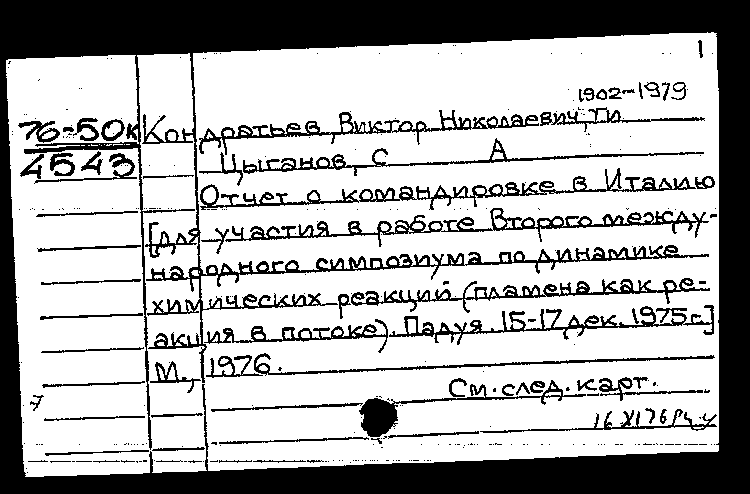 1
1902-1979
76-50к Кондратьев, Виктор Николаевич, ти
4543 Цыганов, С А
Отчет о командировке в Италию
[для участия в работе Второго между-
народного симпозиума по динамике
химических реакций (пламена как ре-
акция в потоке). Падуя. 15-17 дек. 1975 г.]
М., 1976.
См. след. карт.
16 XI 76